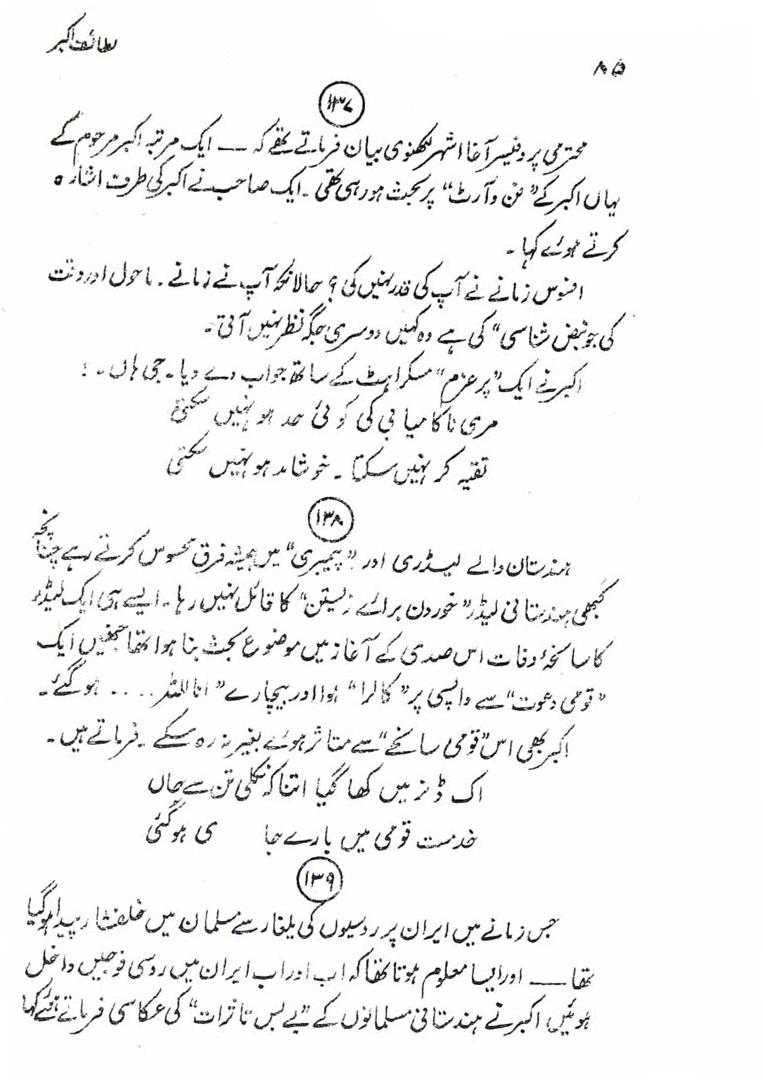 لطائف اکبر
۸۵
۱۳۷
محترمی پروفیسر آغا اشہر لکھنوی بیان فرماتے تھے کہ — ایک مرتبہ اکبر مرحوم کے
یہاں اکبر کے "فن و آرٹ" پر بحث ہو رہی تھی ۔ ایک صاحب نے اکبر کی طرف اشارہ
کرتے ہوئے کہا ۔
افسوس زمانے نے آپ کی قدر نہیں کی ؟ حالانکہ آپ نے زمانے ۔ ماحول اور وقت
کی جو نبض شناسی" کی ہے وہ کہیں دوسری جگہ نظر نہیں آتی ۔
اکبر نے ایک "پر عزم" مسکراہٹ کے ساتھ جواب دے دیا ۔ جی ہاں ۔ :
مری ناکامیابی کی کوئی حد ہو نہیں سکتی
تقیہ کر نہیں سکتا ۔ خوشامد ہو نہیں سکتی
۱۳۸
ہندستان والے لیڈری اور "پیمبری" میں ہمیشہ فرق محسوس کرتے رہے چنانچہ
کبھی ہندستانی لیڈر "خوردن برائے زیستن" کا قائل نہیں رہا ۔ ایسے ہی ایک لیڈر
کا سانحۂ وفات اس صدی کے آغاز میں موضوع بحث بنا ہوا تھا جنھیں ایک
"قومی دعوت" سے واپسی پر "کالرا" ہوا اور بیچارے "انا للہ .... ہو گئے ۔
اکبر بھی اس "قومی سانحے" سے متاثر ہوئے بغیر نہ رہ سکے ۔ فرماتے ہیں ۔
اک ڈنر میں کھا گیا اتنا کہ نکلی تن سے جاں
خدمت قومی میں بارے جا ی ہو گئی
۱۳۹
جس زمانے میں ایران پر روسیوں کی یلغار سے مسلمان میں خلفشار پیدا ہو گیا
تھا — اور ایسا معلوم ہوتا تھا کہ اب اور اب ایران میں روسی فوجیں داخل
ہوئیں اکبر نے ہندستانی مسلمانوں کے "بے بس تاثرات" کی عکاسی فرماتے ہوئے کہا